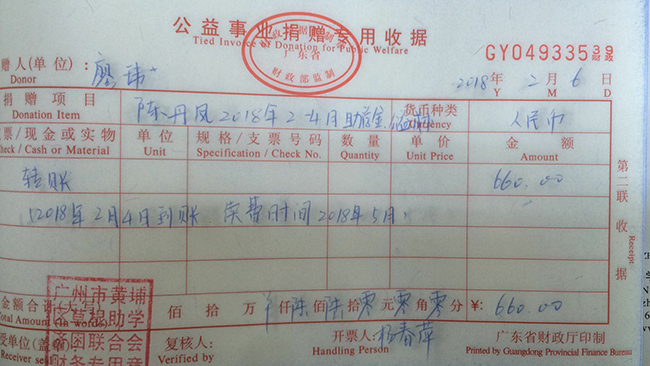 公益事业捐赠专用收据
Tied Invoice of Donation for Public Welfare
广东省
财政部监制
GY04933539
财政
赠人(单位): 廖玮
Donor
2018年 二月 6日
Y M D
捐赠项目 陈丹凤2018年2-4月助学金 货币种类 人民币
Donation Item Currency
票/现金或实物 单位 规格/支票号码 数量 单价 金额
heck / Cash or Material Unit Specification / Check No. Quantity Unit Price Amount
转账 660.00
(2018年2月4日到账 续费时间2018年5月)
第二联 收据
Receipt
金额合计(大写) 佰 拾 万 仟 陆佰 陆拾 零元 零角 零分 ¥: 660.00
Total Amount (In words)
广州市黄埔
区草根助学
济困联合会
财务专用章
受单位(盖章): 复核人: 开票人: 杨春萍 广东省财政厅印制
Receiver seal Verified by Handling Person Printed by Guangdong Provincial Finance Bureau